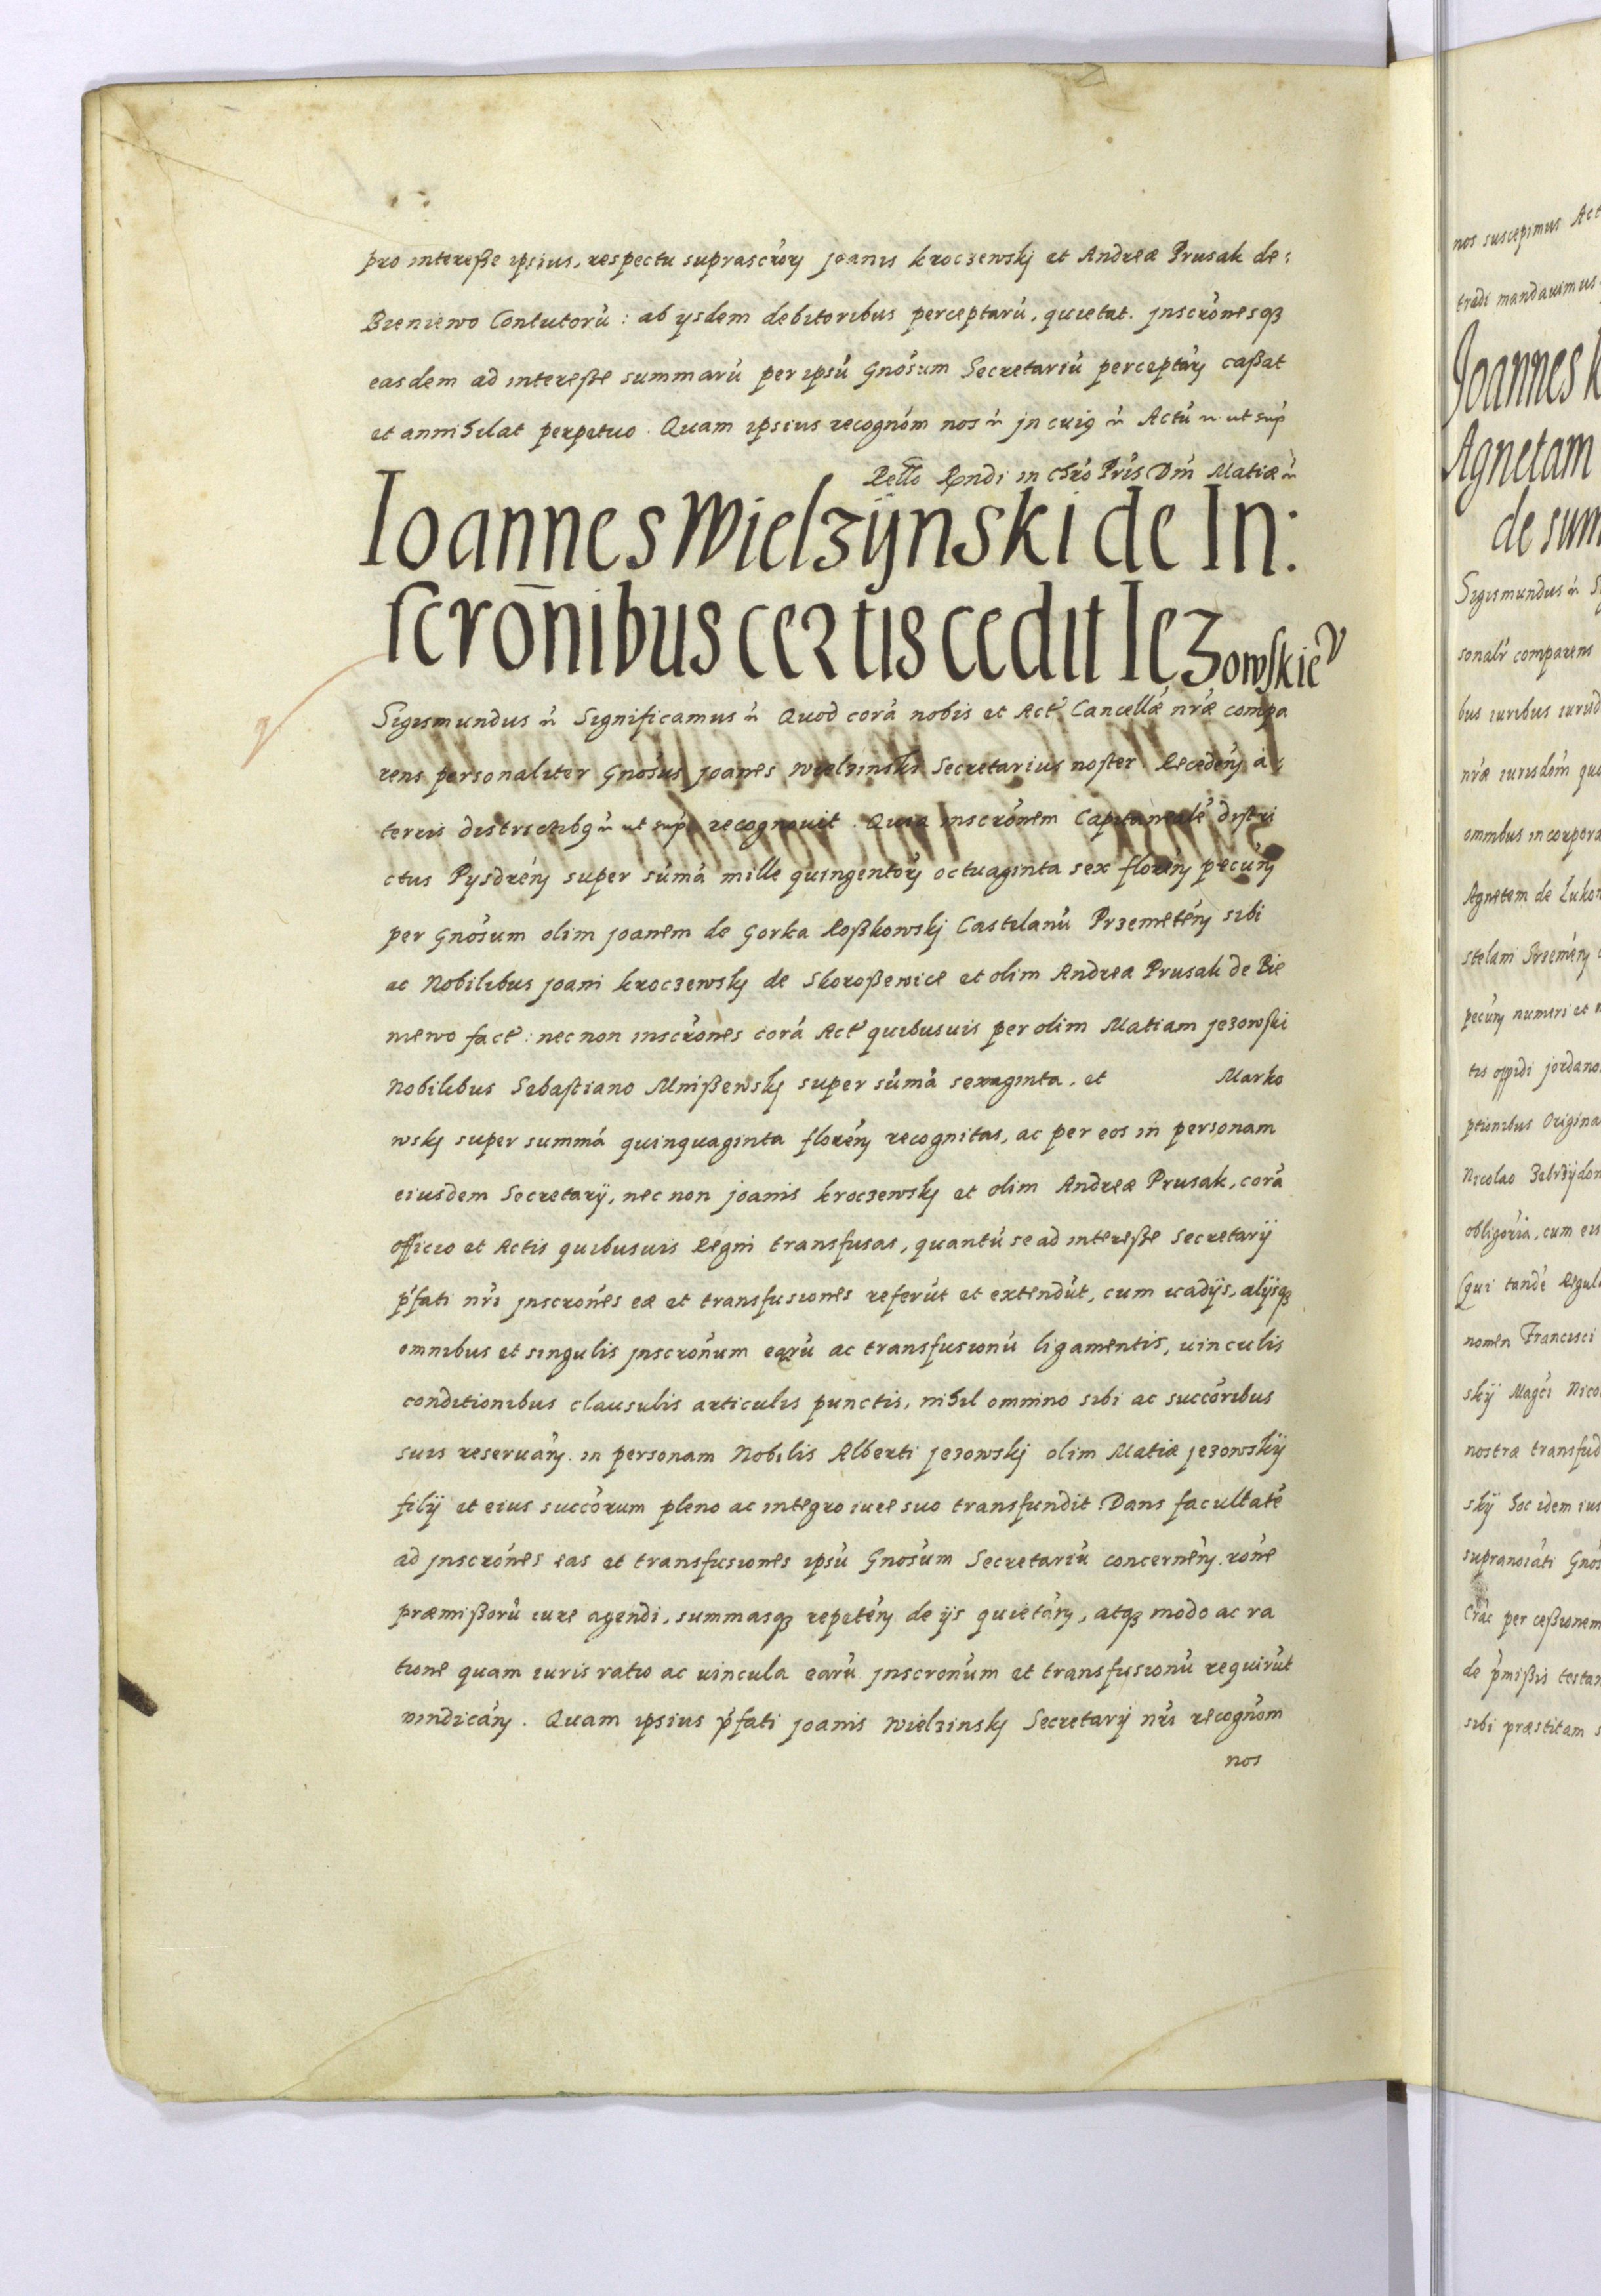 pro intereße ipsius, respectu suprascrõrŋ joanis kroczewskj et Andreæ Prusak de:
Bieniewo Contutorũ: ab ysdem debitoribus perceptarũ, quietat. jnscrõnesqȝ
easdem ad intereße summarũ per ipsũ Gnõsum Secretariũ perceptarŋ caßat
et annihilat perpetuo. Quam ipsius recognõm nos ñ jn cuiꝯ ñ Actũ ñ ut sup̃
Rello Rndi in Chrõ Pris Dñi Matiæ ñ
Ioannes Wielzÿnski de In:
scrõnibus certis cedit Iezowskie͂v
Sigismundus ñ Significamus ñ Quod corã nobis et Act̃ Cancellæ nræ compa
rens personaliter Gnõsus joañes Wielzinski Secretarius noster Recedeñ à:
terris districtibꝯ ñ ut sup̃ recognouit. Quia inscrõnem Capitaneale͂ distri
ctus Pysdreñ super sũmã mille quingentorŋ octuaginta sex floreñ pecuñ
per Gnõsum olim joanem de Gorka Roßkowskj Castelanũ Przemeteñ sibi
ac Nobilibus joani kroczewskj de Skoroßewice et olim Andreæ Prusak de Bie
niewo fact̃: nec non inscrõnes corã Act̃ quibusuis per olim Matiam jezowski
Nobilibus Sebastiano Mnißewskj super sũmã sexaginta, et Marko
wskj super summã quinquaginta floreñ recognitas, ac per eos in personam
eiusdem Secretarÿ, nec non joanis kroczewskj et olim Andreæ Prusak, corã
officio et Actis quibusuis Regni transfusas, quantũ se ad intereße Secretarÿ
p̃fati nri jnscrõnes eæ et transfusiones referũt et extendũt, cum uadÿs, alÿsqȝ
omnibus et singulis jnscrõnum earũ ac transfusionũ ligamentis, uinculis
conditionibus clausulis articulis punctis, nihil omnino sibi ac succõribus
suis reseruañ. in personam Nobilis Alberti jezowskj olim Matiæ jezowskÿ
filÿ et eius succõrum pleno ac integro iure suo transfundit. Dans facultate͂
ad jnscrõnes eas et transfusiones ipsũ Gnõsum Secretariũ concerneñ. rõne
præmißorũ iure agendi, summasqȝ repeteñ de ÿs quietañ, atqȝ modo ac ra
tione quam iuris ratio ac uincula earũ jnscronũm et transfusionũ requirũt
vindicañ. Quam ipsius p̃fati joanis Wielzinskj Secretarÿ nri recognõm
nos
nos suscepimus Act
tradi mandauimus
Joannes k
Agnetam
de sum
Sigismundus ñ
sonalr comparens
bus iuribus
nræ iurisdom̃ qu
omnibus incorpora
Agnetem de Luko
stelani Przemeñ
pecuñ numeri et
tis oppidi jordano
ptionibus Origina
Nicolao Zebrzÿdo
obligõria, cum eis
(qui tande͂ Regul
nomen Francisci
skÿ Magci Nico
nostræ transfud
skÿ hoc idem ius
supranoiati Gnõs
Crac per ceßionem
de p̃mißis testa
sibi præstitam s